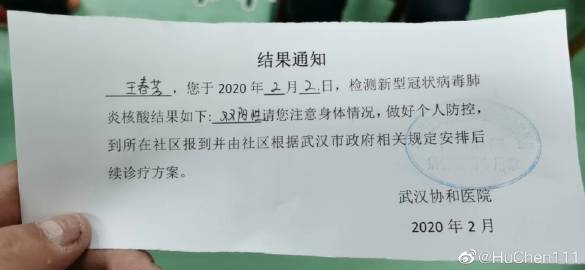 结果通知
王春芳，您于 2020 年 2 月 2 日，检测新型冠状病毒肺
炎核酸结果如下: 双阳性 请您注意身体情况，做好个人防控，
到所在社区报到并由社区根据武汉市政府相关规定安排后
续诊疗方案。
武汉协和医院
2020 年 2 月
@HuChen111